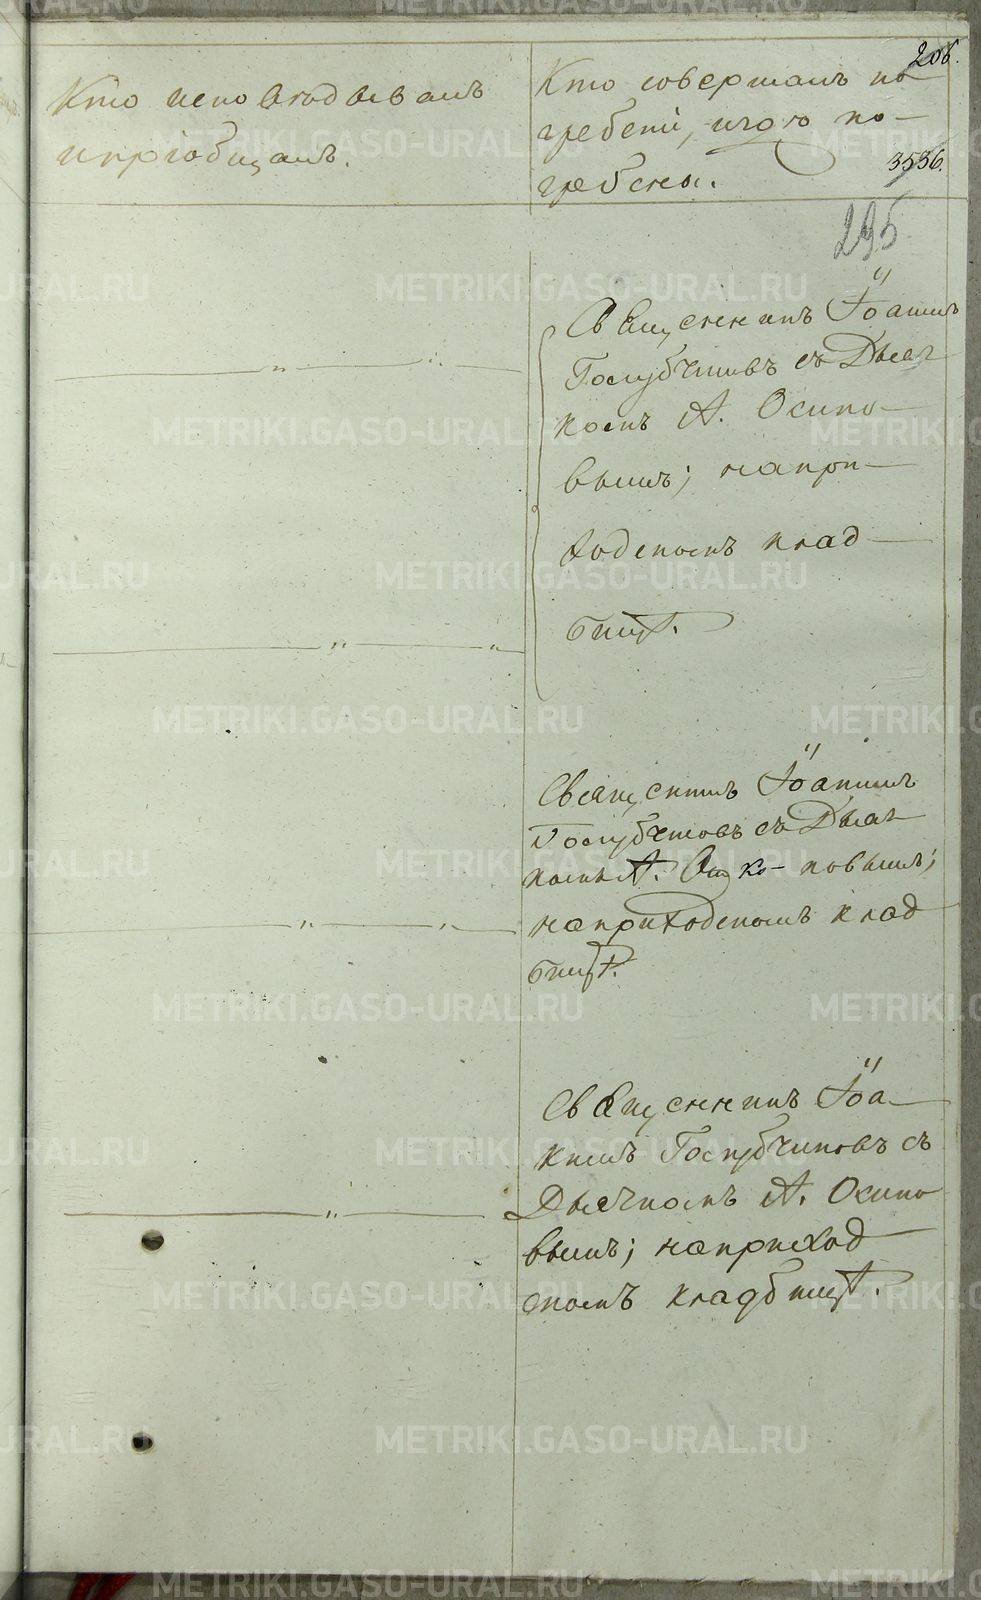 206.
Кто исповѣдывалъ
и пріобщалъ.
Кто совершалъ по-
гребеніе, и гдѣ по-
гребены.
3536.
295
Священникъ Іоаннъ
Голубчиковъ съ Дьяч-
комъ А. Осипо-
вымъ; на при-
ходскомъ клад-
бищѣ.
Священникъ Іоаннъ
Голубчиковъ съ Дьяч-
комъ А. повымъ;
на приходскомъ клад
бищѣ.
Священникъ Іоа-
ннъ Голубчиковъ съ
Дьячкомъ А. Осипо
вымъ; на приход
скомъ кладбищѣ.
METRIKI.GASO-URAL.RU